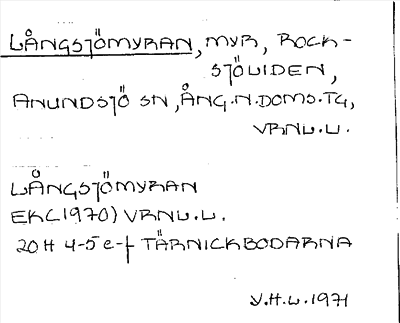 LÅNGSJÖMYRAN, MYR, ROCK-
SJÖLIDEN,
ANUNDSJÖ SN, ÅNG.N.DOMS.TG,
VRNL.L.
LÅNGSJÖMYRAN
EK(1970) VRNL.L.
20H 4-5 e-f TÄRNICKBODARNA
Y.H.L. 1971